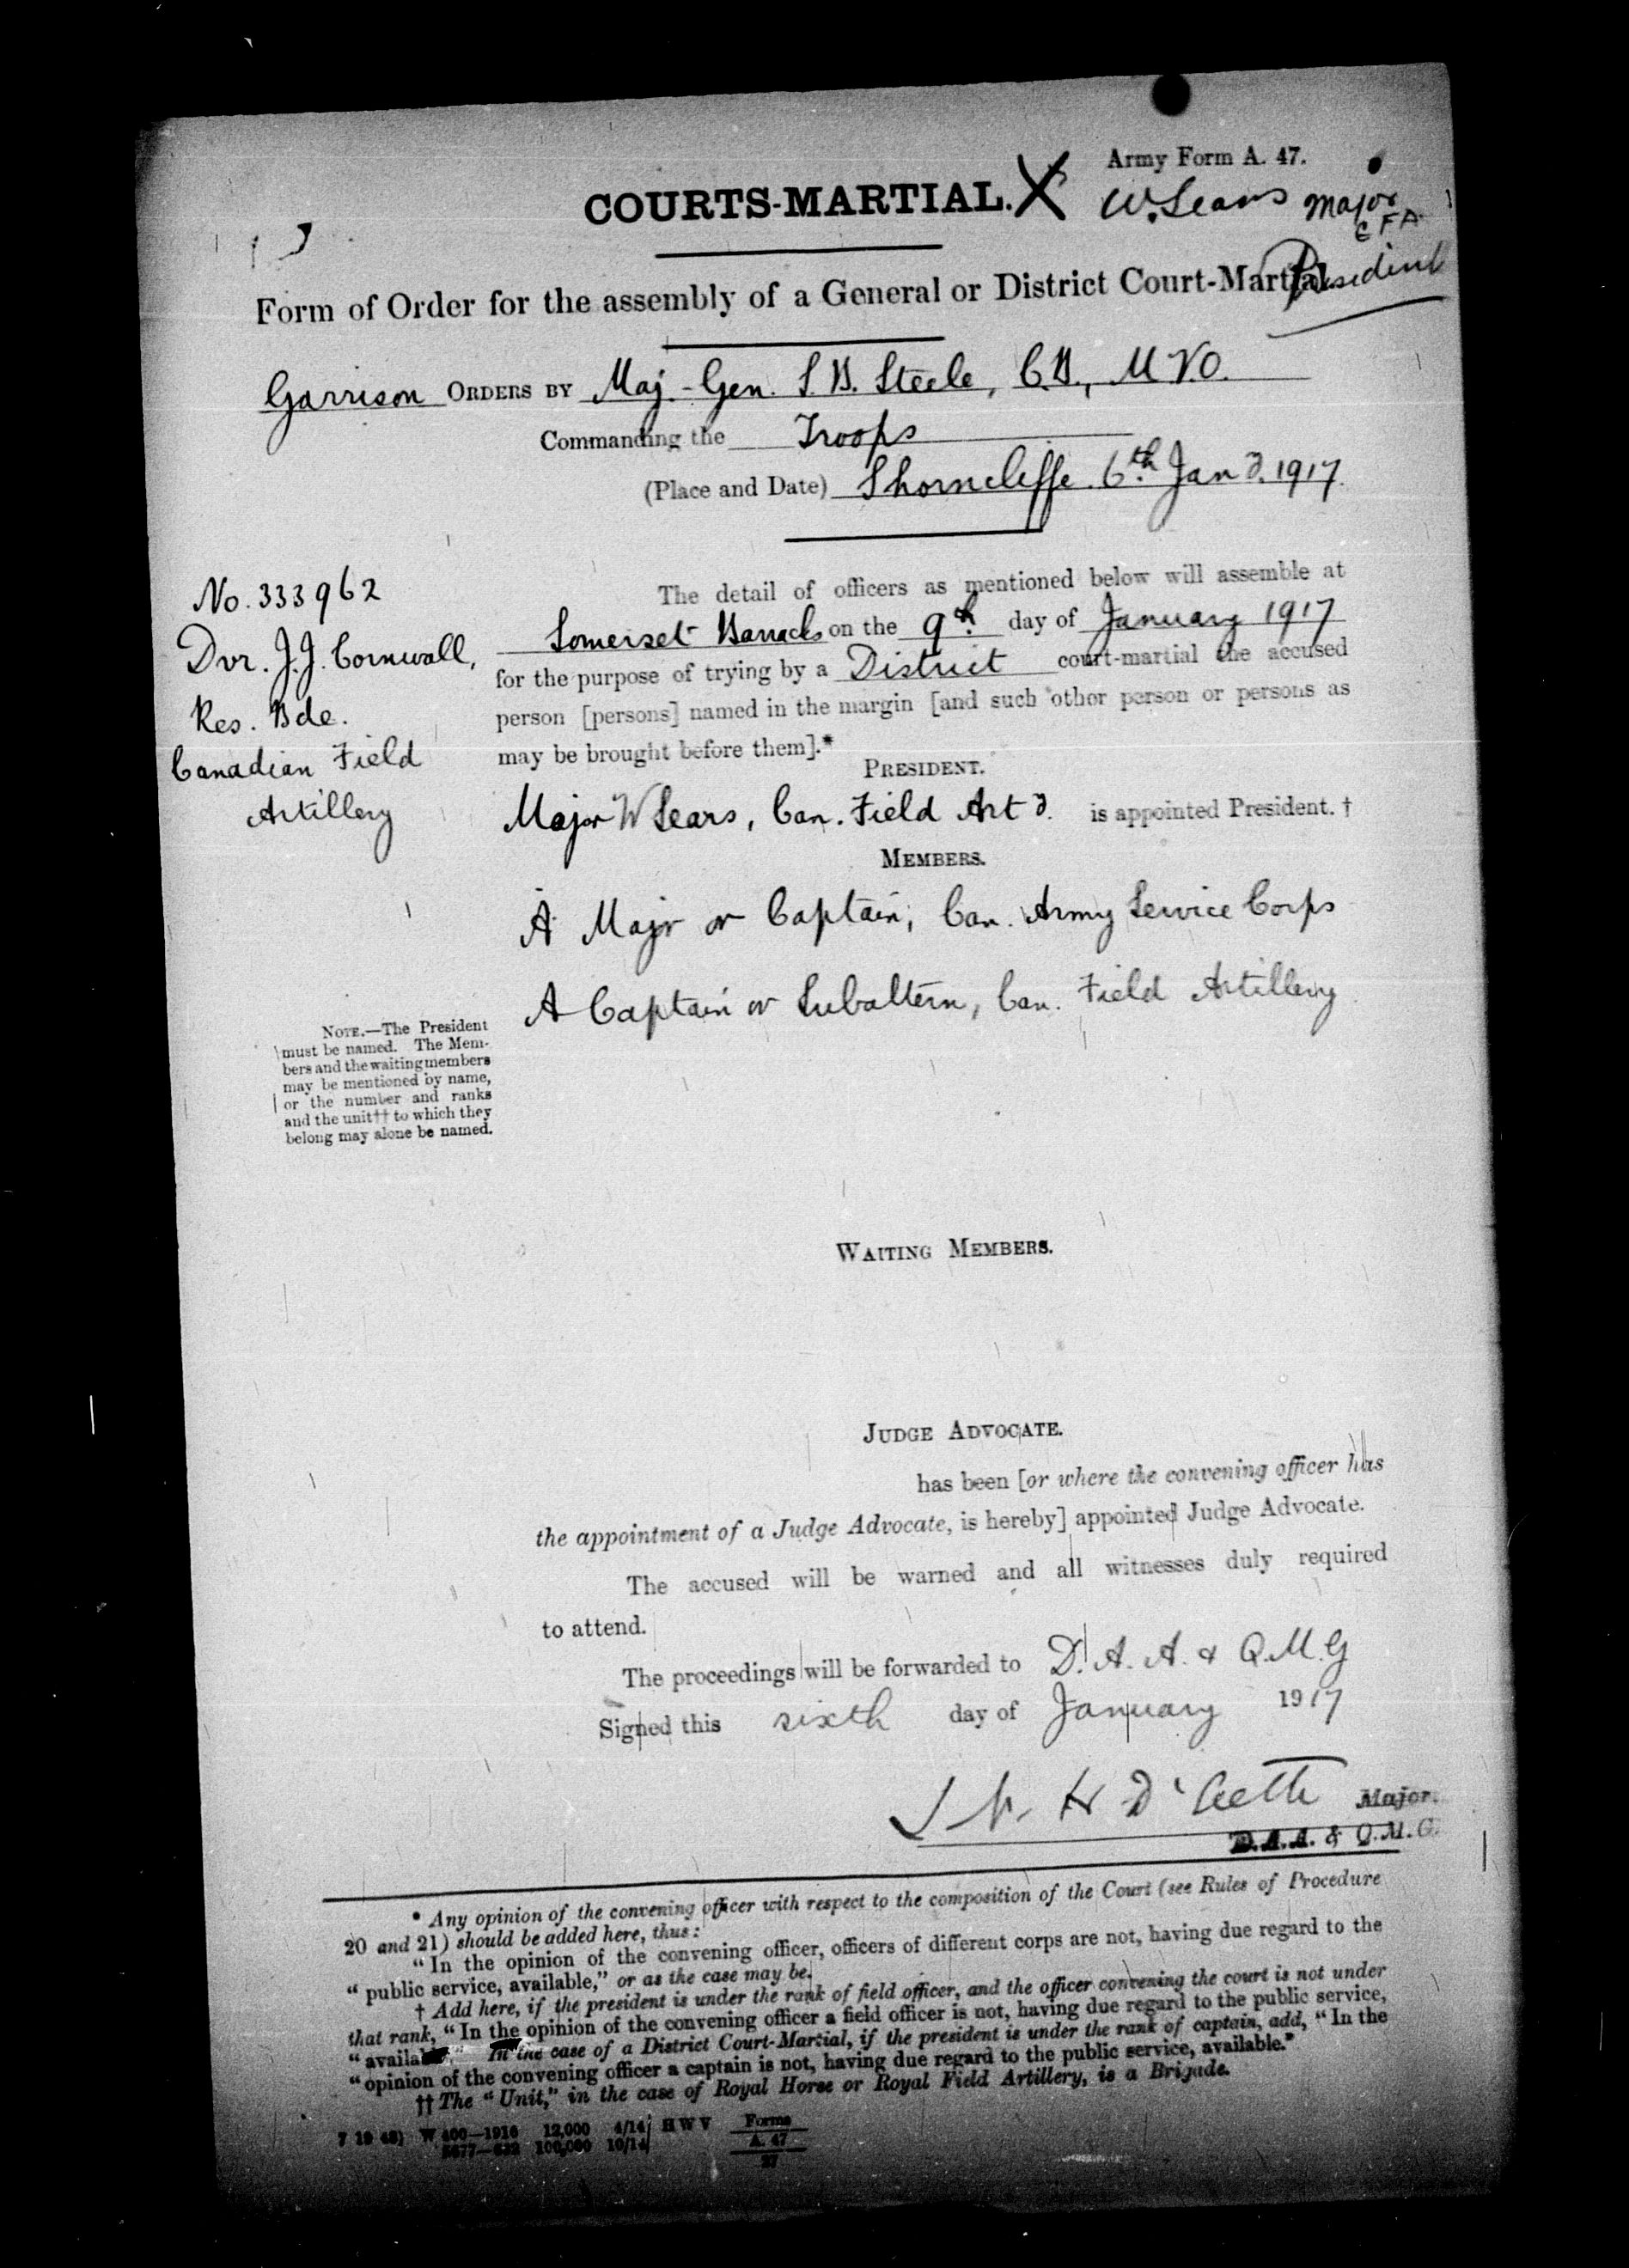 Army Form A. 47.
COURTS-MARTIAL. X W. Sears Major
C F A.
President
Form of Order for the assembly of a General or District Court-Martial.
Garrison ORDERS BY Maj.-Gen. S. B. Steele, C.B., M.V.O.
Commanding the Troops
(Place and Date) Shorncliffe. 6th Jany. 1917.
No. 333962
Dvr. J.J. Cornwall,
Res. Bde.
Canadian Field
Artillery
The detail of officers as mentioned below will assemble at
Somerset Barracks on the 9th day of January 1917
for the purpose of trying by a District court-martial the accused
person [persons] named in the margin [and such other person or persons as
may be brought before them].*
PRESIDENT.
Major W Sears, Can. Field Arty. is appointed President. †
MEMBERS.
A Major or Captain, Can. Army Service Corps
A Captain or Subaltern, Can. Field Artillery
NOTE.—The President
must be named. The Mem-
bers and the waiting members
may be mentioned by name,
or the number and ranks
and the unit†† to which they
belong may alone be named.
WAITING MEMBERS.
JUDGE ADVOCATE.
has been [or where the convening officer has
the appointment of a Judge Advocate, is hereby] appointed Judge Advocate.
The accused will be warned and all witnesses duly required
to attend.
The proceedings will be forwarded to D. A. A. & Q.M.G
Signed this sixth day of January 1917
H D' Aeth Major.
D.A.A. & Q.M.G.
* Any opinion of the convening officer with respect to the composition of the Court (see Rules of Procedure
20 and 21) should be added here, thus:
"In the opinion of the convening officer, officers of different corps are not, having due regard to the
"public service, available," or as the case may be.
† Add here, if the president is under the rank of field officer, and the officer convening the court is not under
that rank, "In the opinion of the convening officer a field officer is not, having due regard to the public service,
"available." In the case of a District Court-Martial, if the president is under the rank of captain, add, "In the
"opinion of the convening officer a captain is not, having due regard to the public service, available."
†† The "Unit," in the case of Royal Horse or Royal Field Artillery, is a Brigade.
7 19 48) W 400—1916 12,000 4/14 H W V Forms
100,000 10/14 A. 47
27